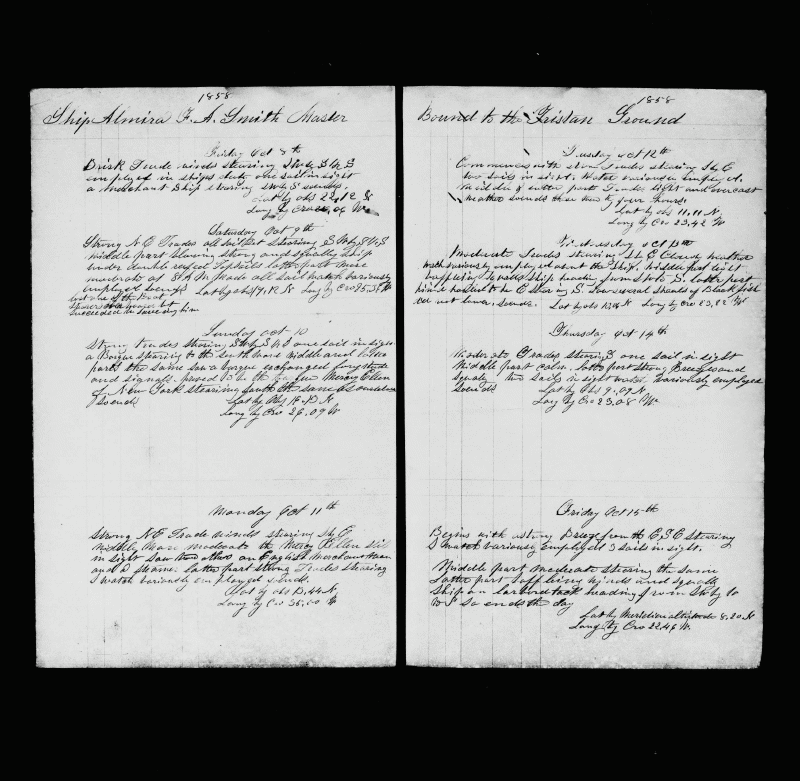 1858
Ship Almira F. A. Smith Master
Friday Oct 8th
Brisk Trade winds stearing S W by S & S
employed in ships duty one sail in sight
a merchant Ship stearing S W by S soends.
Lat by obs 22,12 N
Long by Cro W
Saturday Oct 9th
Strong N E Trades all sail set stearing S W by S & S
middle part blowing strong and squally ship
under double reefed Topsails latter part more
moderate at A M made all sail watch variously
employed soends
Lat by obs N Long by Cro W
lost one of the Boat
but
succeeded in saveing him
Sunday Oct 10
Strong trades stearing S W by S one sail in sight
a Barque stearing to the southward middle and latter
parts the same saw a barque exchanged
and signals. proved to be the Barque Mercy Ellen
of New York stearing south the same as ourselves
soends
Lat by Obs N
Long by Cro 26,09 W
Monday Oct 11th
Strong N E Trade winds stearing S by E
middle more moderate the Mercy Ellen still
in sight saw two other an English merchantman
and a Steamer Latter part strong Trades stearing
S watch variously employed soends.
Lat by obs N
Long by Cro W
1858
Bound to the Tristan Ground
Tuesday Oct 12th
Commences with strong Trades stearing S by E
two sails in sight. Watch variously employed.
middle & latter part Trades light and overcast
weather soends these twenty four hours.
Lat by obs 11,11 N
Long by Cro 23,42 W
Wednesday Oct 13th
Moderate Trades stearing S by E Cloudy weather
watch variously employed about the Ship. middle part light
baffleing squalls ship heading from S W to S. latter part
wind hauled to the E stearing S. saw several shoals of Blackfish
did not lower. soends.
Lat by obs N Long by Cro W
Thursday Oct 14th
Moderate Trades stearing S one sail in sight
Middle part calm. latter part strong Breeze and
squally two sails in sight watch variously employed
soends
Lat by Obs 9,09 N
Long by Cro 23,08 W
Friday Oct 15th
Begins with a strong Breeze from the E, S E stearing
S watch variously employed 3 sails in sight.
Middle part moderate stearing the same
Latter part baffleing winds and squally
ship on larboard tack heading from S W by to
W S so ends the day
Lat by Meridian altitude 8,20 N
Long by Cro 22,46 W.